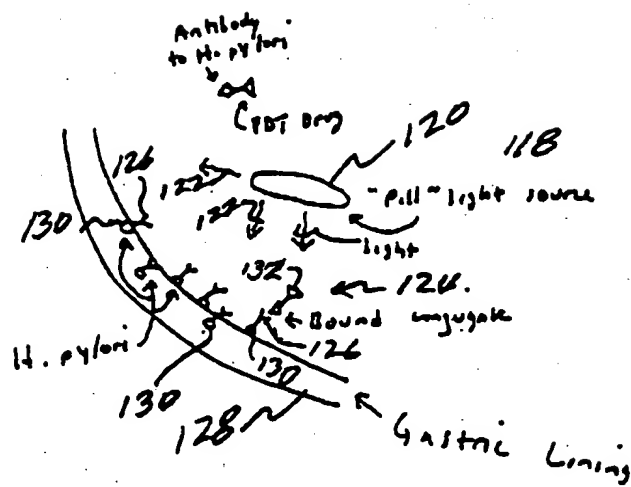 Antibody
to H. pylori
PDT Drug
120
118
126
122
"Pill" light source
130
122
light
132
124.
Bound conjugate
126
H. pylori
130
130
128
Gastric Lining